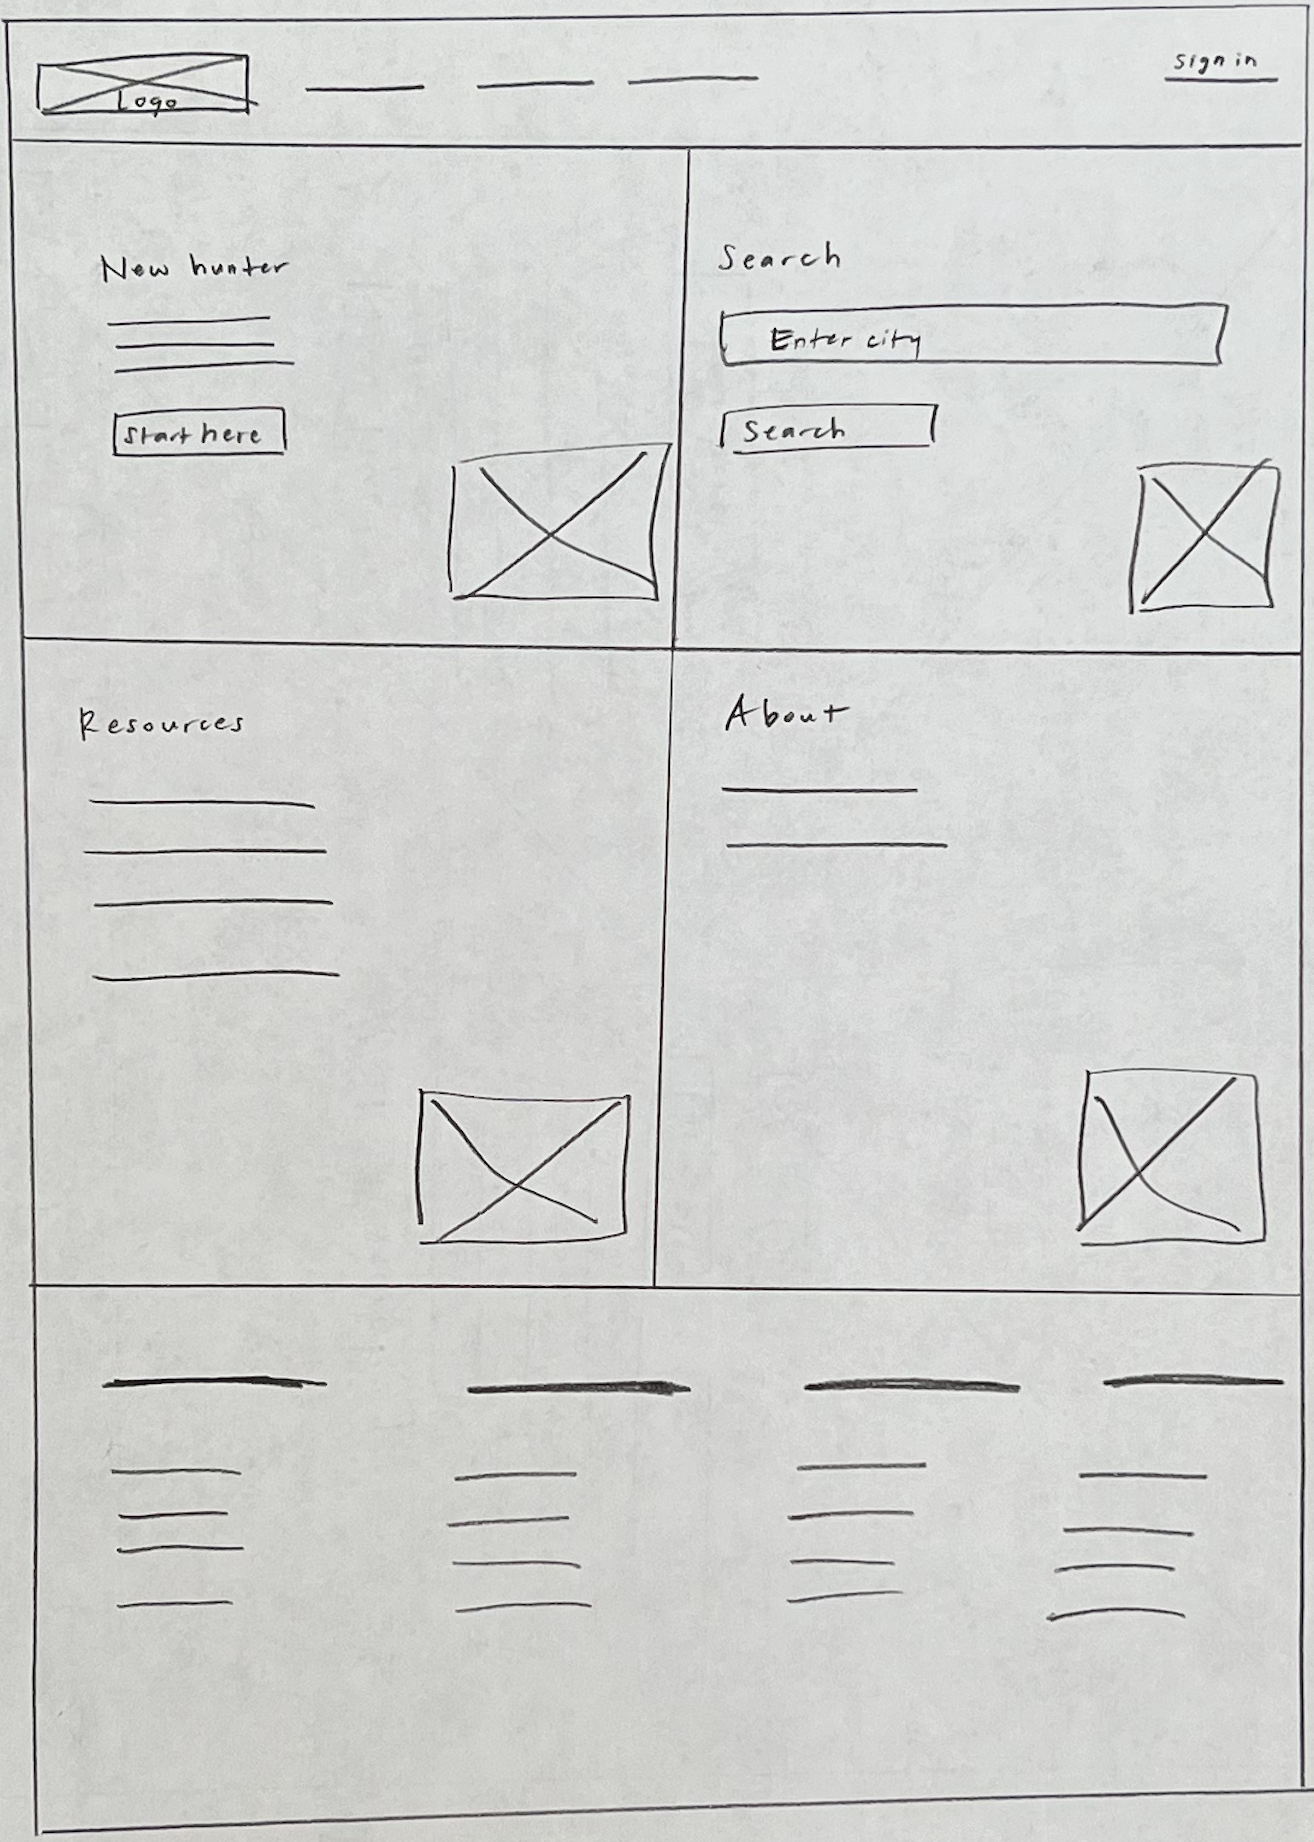 Logo
sign in
New hunter
Start here
Search
Enter city
Search
Resources
About